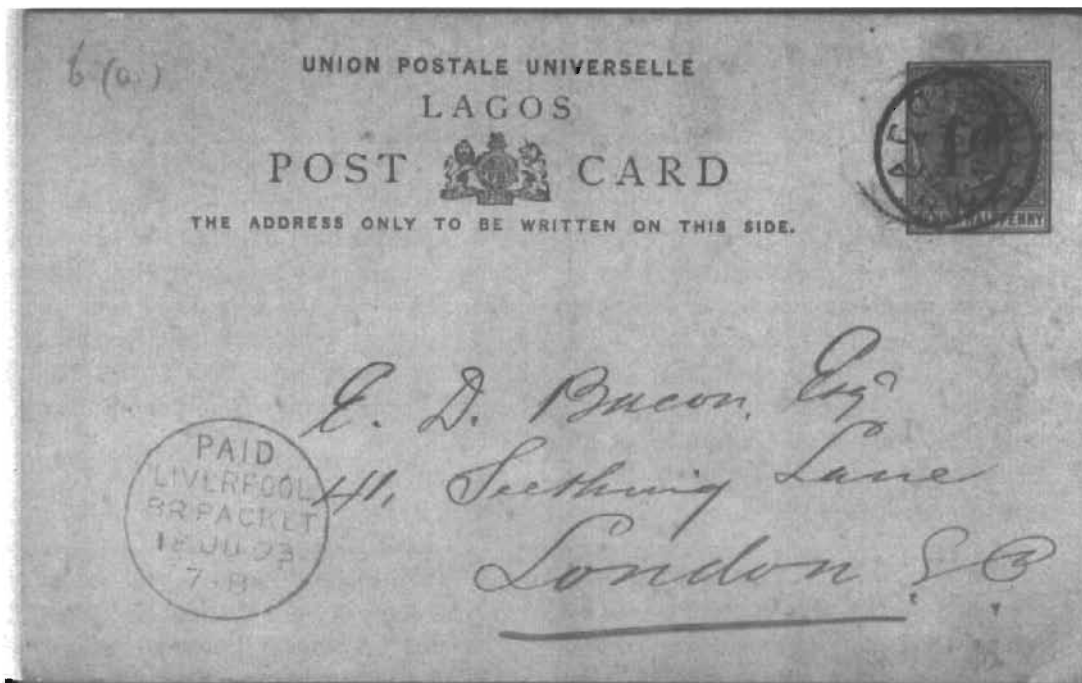 6 (a.)
UNION POSTALE UNIVERSELLE
LAGOS
POST CARD
THE ADDRESS ONLY TO BE WRITTEN ON THIS SIDE.
HALFPENNY
E. D. Bacon, Esqr
41, Seething Lane
London E C
PAID
LIVERPOOL
BR PACKET
18 JU 93